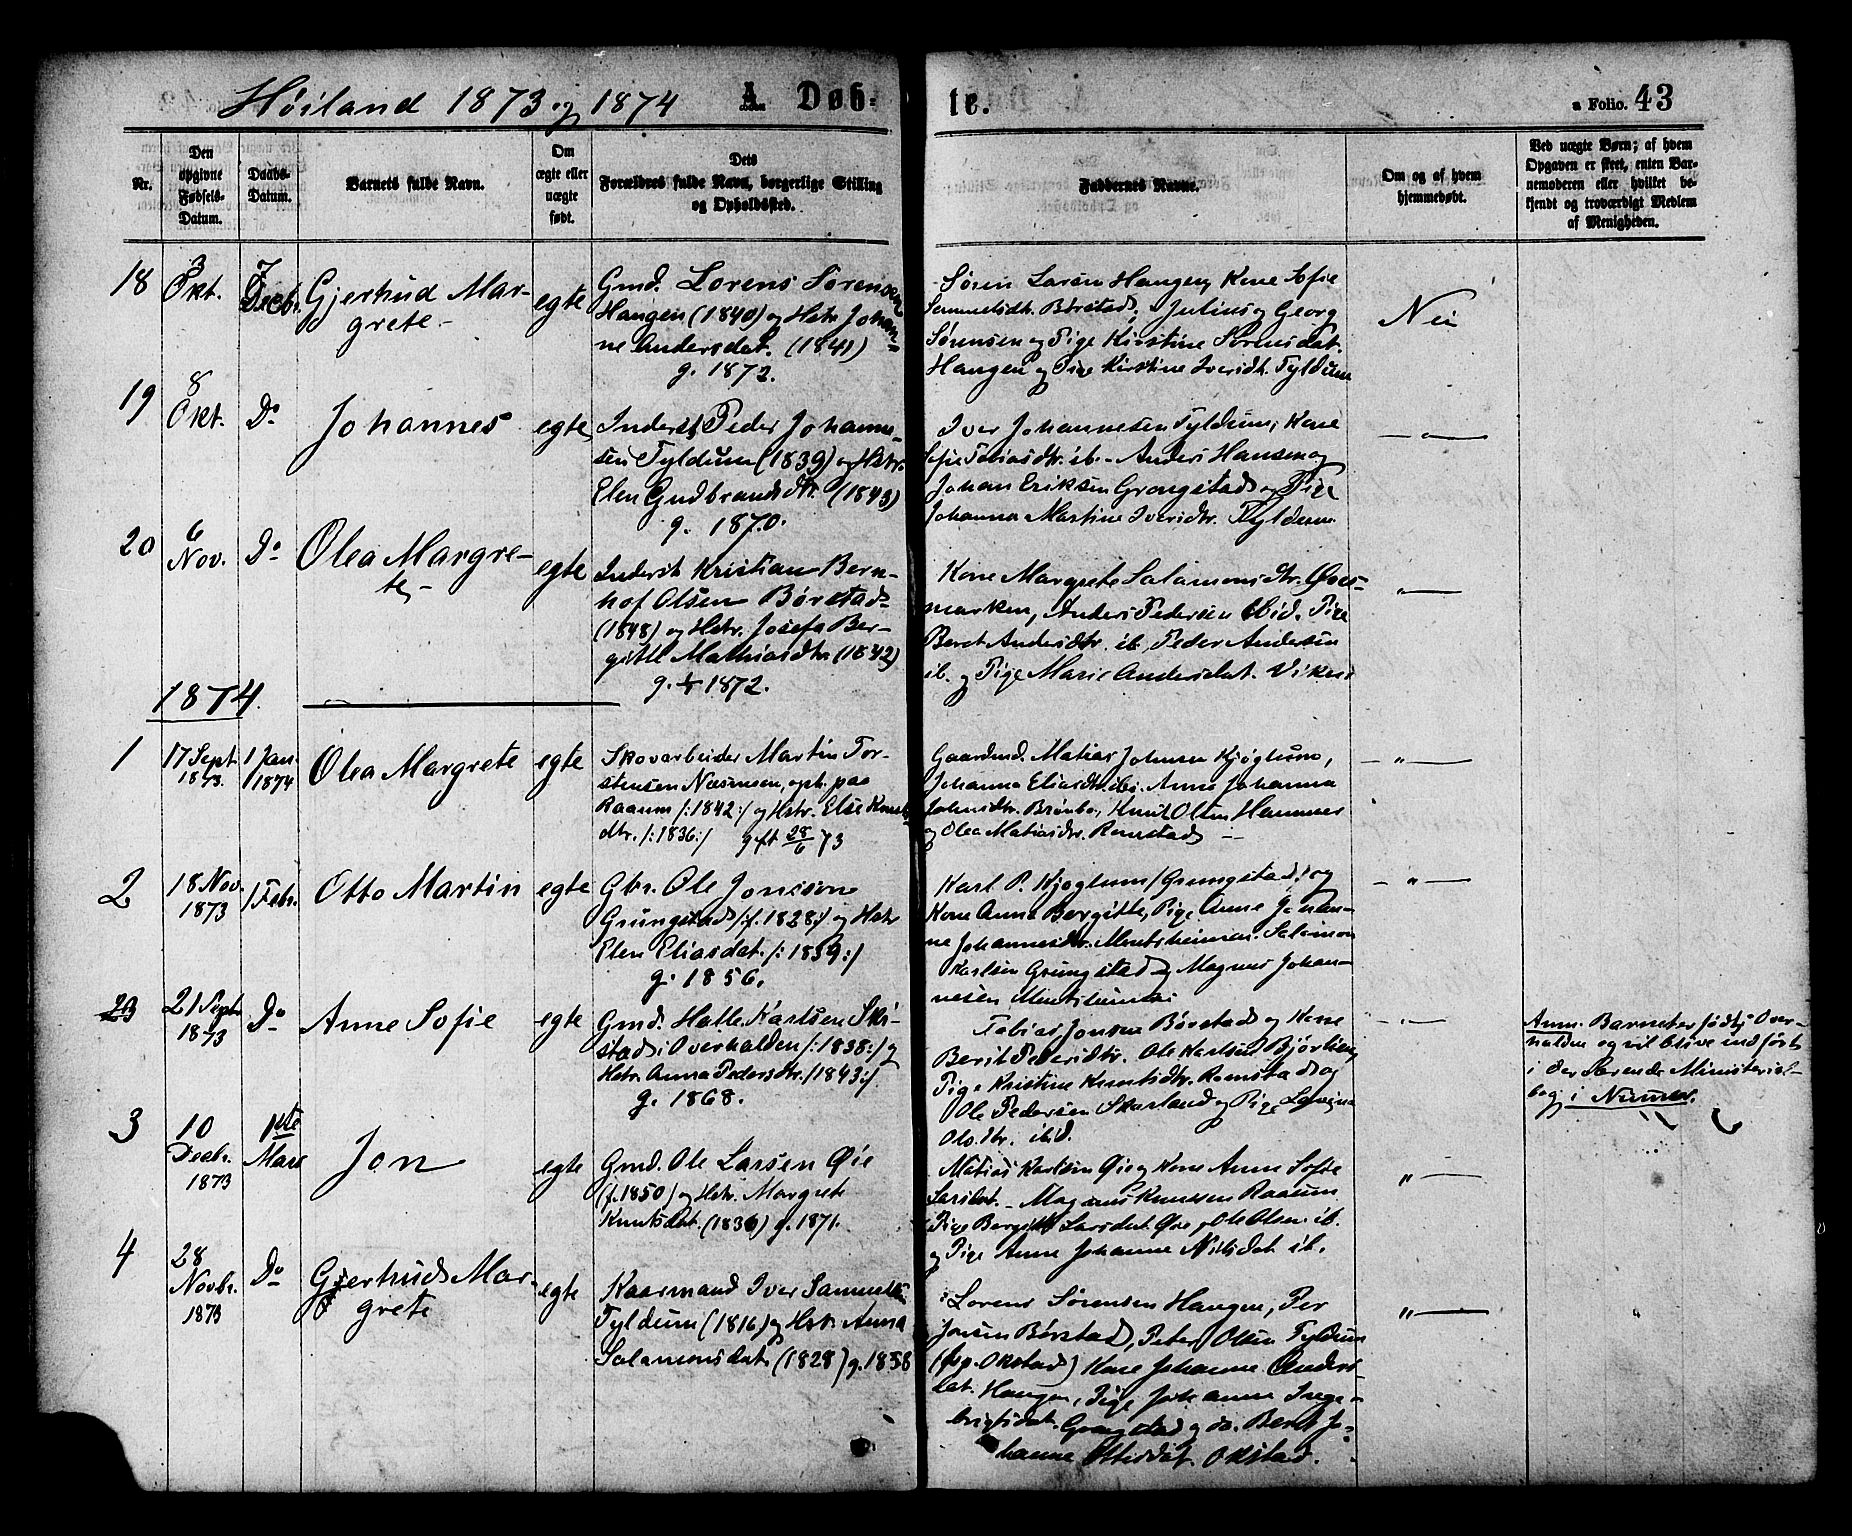 Høiland 1873 og 1874 A. Døb=
te.
a Folio. 43
Nr.
Den opgivne Fødsels-Datum.
Daabs-Datum.
Barnets fulde Navn.
Om ægte eller uægte født.
Dets Forældres fulde Navn, borgerlige Stilling og Opholdssted.
Faddernes Navne.
Om og af hvem hjemmedøbt.
Ved uægte Børn; af hvem Opgaven er skeet, enten Barnemoderen eller hvilket bekjendt og troværdigt Medlem af Menigheden.
18
3 Okt.
7 Decbr.
Gjertrud Mar-
grete -
egte
Gmd. Lorens Sørensen
Hangen (1840) og Hstr. Johan-
ne Andersdat. (1841)
g. 1872.
Søren Larsen Hangen, Kone Sofie
Samuelsdtr. Børstad, Julius og Georg
Sørensen og Pige Kirstine Sørensdat.
Hangen og Pige Kirstine Iversdtr. Tyldum
Nei
19
8 Okt.
Do
Johannes
egte
Inderst Peder Johanne-
sen Tyldum (1839) og Hstr.
Elen Gudbrandsdtr. (1843)
g. 1870.
Iver Johannesen Tyldum, Kone
Sofie Tobiasdtr. ib. - Anders Hansen og
Johan Eriksen Grongstad og Pige
Johanna Martine Iversdtr. Tyldum
— " —
20
6 Nov.
Do
Olea Margre-
te, -
egte
Inderst Kristian Bern-
hof Olsen Børstad
(1848) og Hstr. Josefa Ber-
gitte Mathiasdtr. (1842)
g. 1872.
Kone Margrete Salamonsdtr. Øies-
marken, Anders Pedersen ibid. Pige
Beret Andersdtr. ib, Peder Andersen
ib. og Pige Marie Andersdat. Viken
— " —
1874.
1
17 Sept. 1873.
1 Jan. 1874
Olea Margrete
egte
Skovarbeider Martin Tor-
stensen Næsmoen, oph. paa
Raaum /:1842:/ og Hstr. Else Knuts-
dtr. /:1836:/ gft 28/6 73
Gaardmd. Matias Johnsen Kjøglum,
Johanna Eliasdtr. ibi. Anne Johanna
Johnsdtr. Brønbo, Knut Olsen Hammer
og Olea Matiasdtr. Romstad -
— " —
2
18 Nov. 1873
1 Febr.
Otto Martin
egte
Gbr. Ole Jonsson
Grungstad /f. 1828:/ og Hstr
Elen Eliasdat. /: 1839:/
g. 1856.
Karl P. Kjøglum /Grungstad/ og
Kone Anna Bergitte, Pige Anne Johan-
ne Johannesdtr. Mentsheimon. Salamon
Karlsen Grungstad og Magnus Johan-
nesen
— " —
23
21 Sept 1873
Do
Anne Sofie
egte
Gmd. Halle Karlsen Ski-
stad i Overhalden /:1838:/ og
Hstr. Anna Pedersdtr. /1843:/
g. 1868.
Tobias Jonsen Børstad og Kone
Berit Pedersdtr. Ole Karlsen Bjørlien,
Pige Kristine Knutsdtr. Romstad og
Ole Pedersen Skarland og Pige Lovina
Olsdtr. ibid.
— " —
Anm. Barnet er født i Over-
halden og vil blive indført
i der værende Ministerial-
bog i Numer.
3
10 Decbr. 1873
1ste Mars
Jon
egte
Gmd. Ole Larsen Øie
(f. 1850) og Hstr. Margrete
Knutsdat. (1836) g. 1871.
Matias Karlsen Øie og Kone Anne Sofie
Larsdat. - Magnus Knutsen Raaum
Pige Bergitte Larsdat. Øie, Ole Olsen ib.
og Pige Anne Johanne Nilsdat ib.
" —
4
28 Novbr. 1873
Do
Gjertrud Mar-
grete
egte
Kaarmand Iver Samuelsen
Tyldum (1816) og Hstr. Anna
Salamonsdat. (1828) g. 1858
Lorens Sørensen Hangen, Per
Jonsen Børstad, Peter Olsen Tyldum
Okstad) Kone Johanne Anders-
dat. Hangen, Pige Johanna Inge-
brigtsdat. Grongstad og do. Beret Jo-
hanne Ottisdat. Okstad.
" —